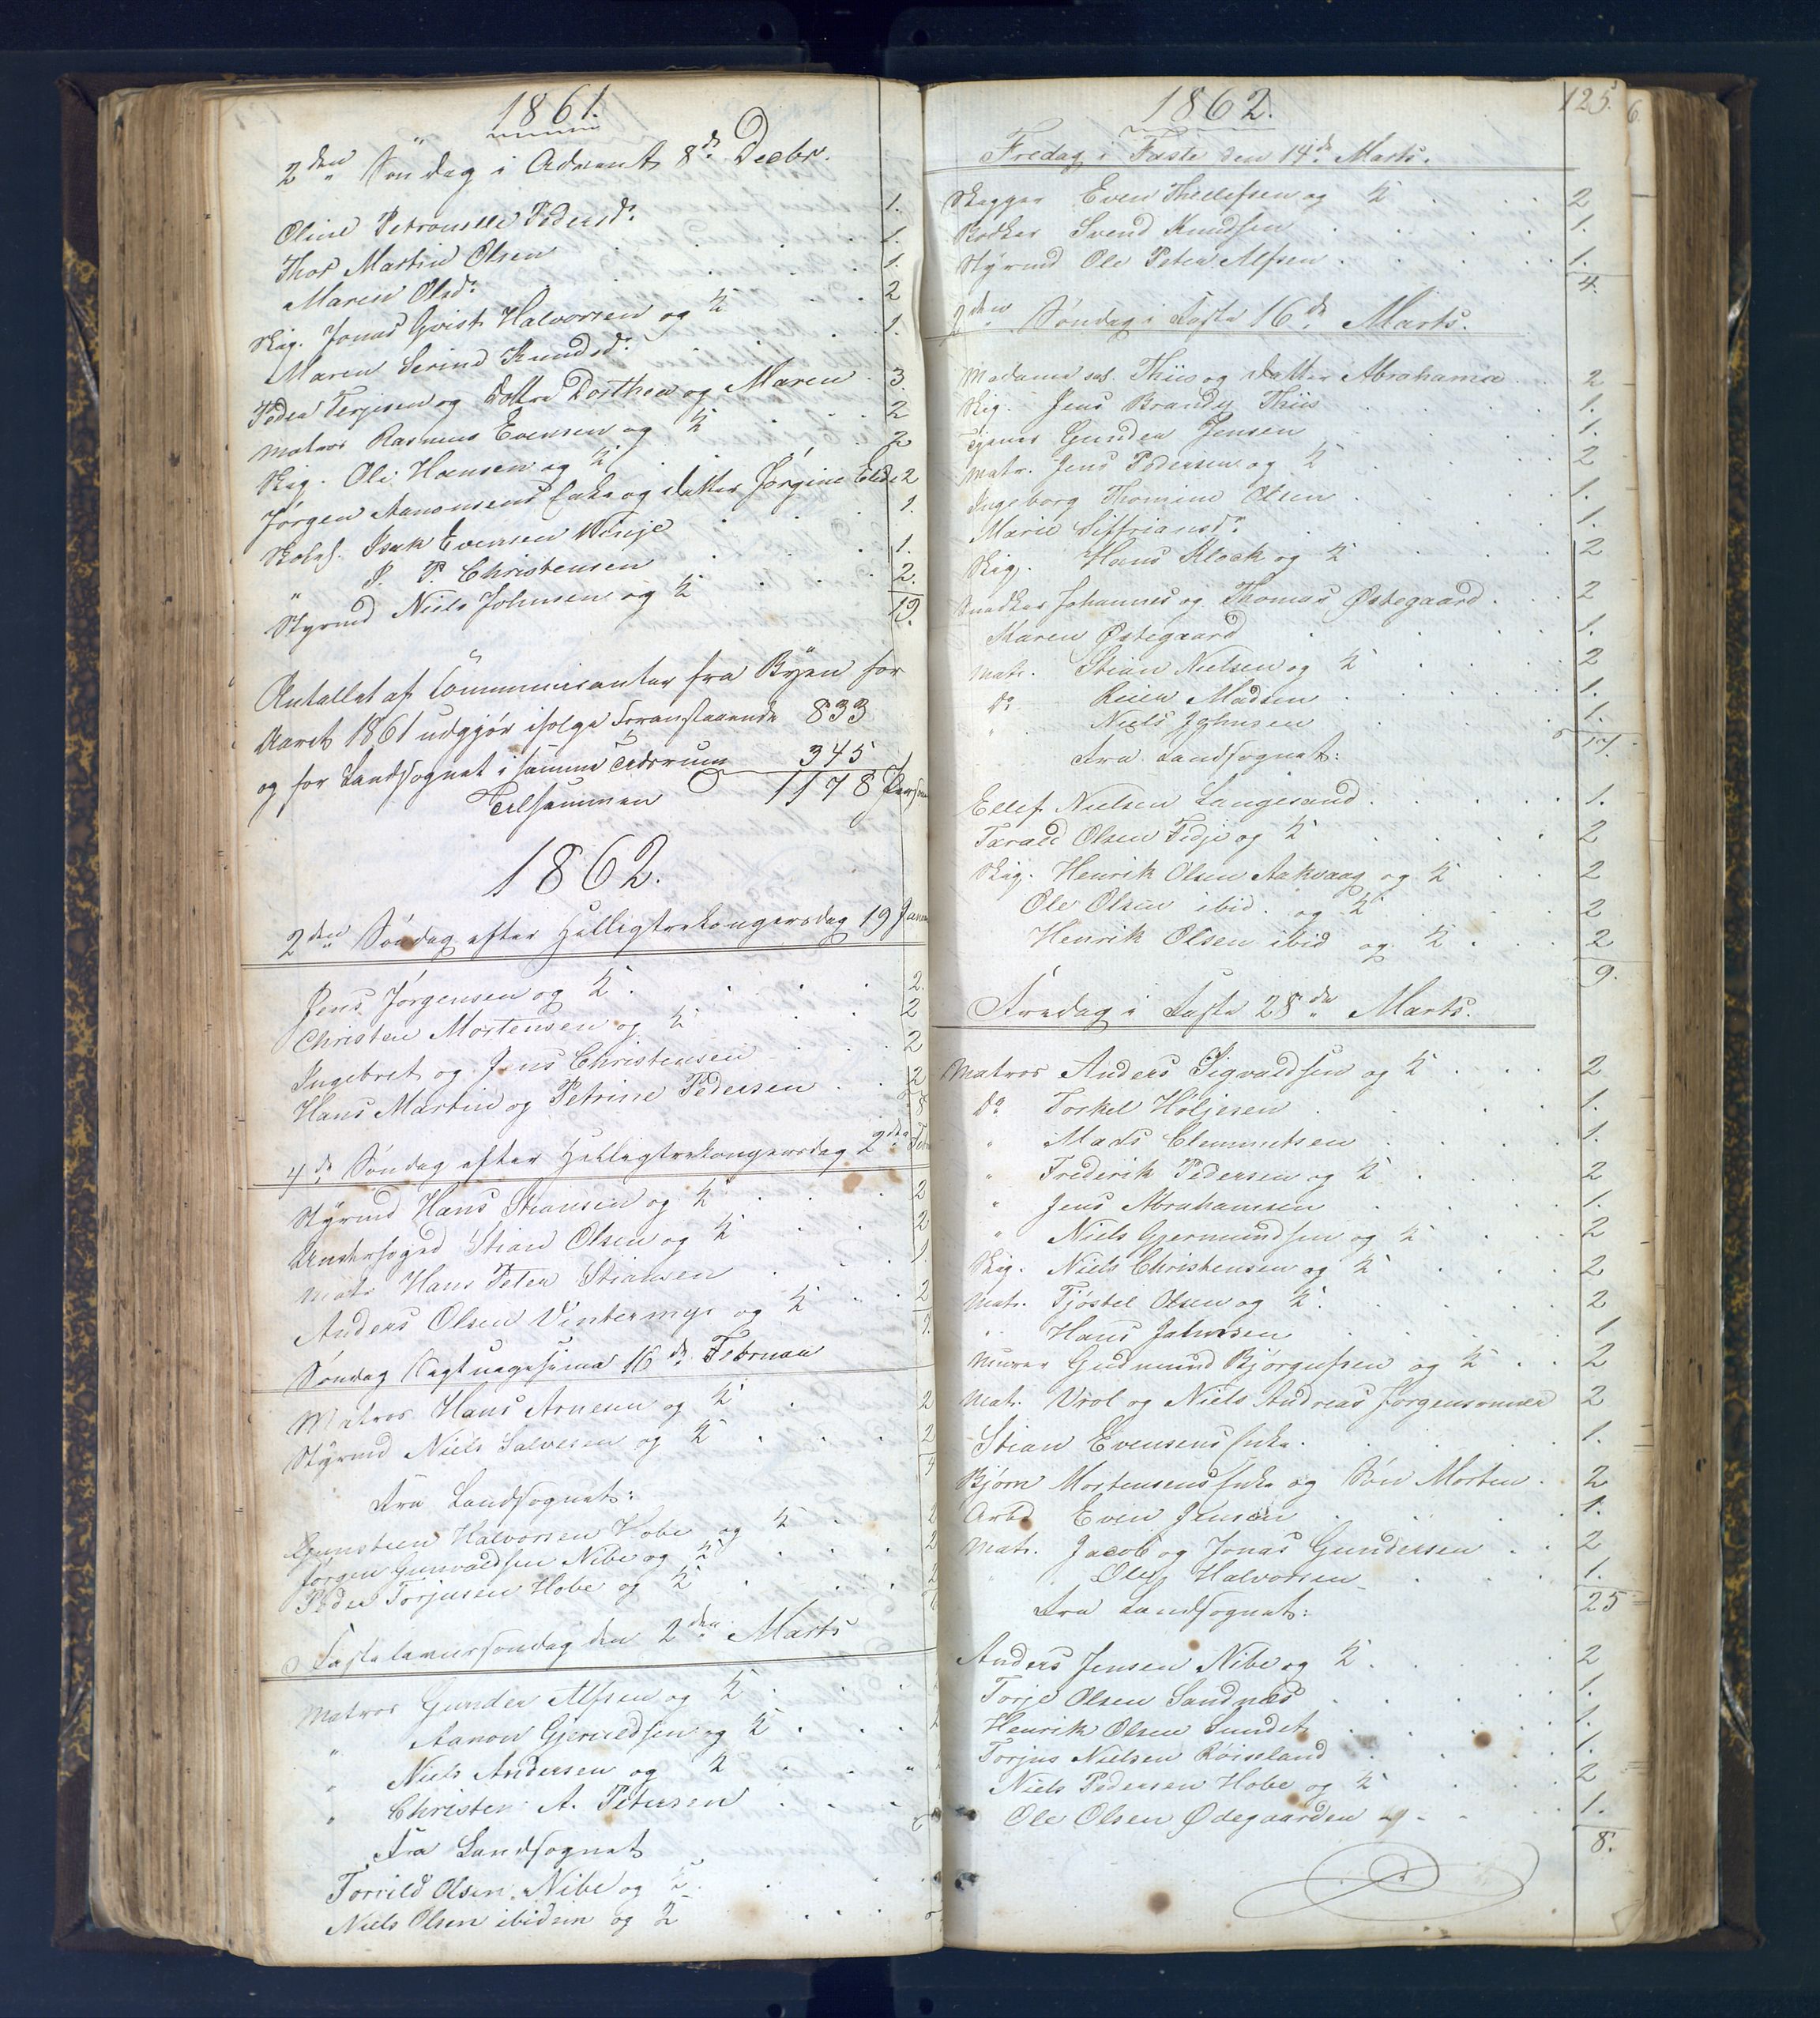 1861.
2den Søndag i Advent 8de Decbr.
Oline Petronelle Pedersd. 1.
Thor Martin Olsen 1.
Maren Olsd. 1.
Skig. Jonas Qvist Halvorsen og K 2
Maren Serine Knudsd. 1.
Peder Terjesen og Dottre Dorthea og Maren 3.
Matros Rasmus Evensen og K 2
Skig. Ole Hansen og K 2
Jørgen Aanonsens Enke og datter Jørgine Elise 2
Isak Evensen Vinje 1.
" P. P. Christensen 1.
Styrmd Niels Johnsen og K 2.
19.
Antallet af Communicanter fra Byen for
Aaret 1861 udgjør ifølge Foranstaaende 833
og for Landsognet i samme Tidsrum 345
Tilsammen 1178
1862.
2den Søndag efter Helligtrekongersdag 19 Janu
Jens Jørgensen og K. 2.
Christen Mortensen og K 2
Ingebret og Jens Christensen 2
Hans Martin og Petrine Pedersen 2
8
4de Søndag efter Helligtrekongersdag 2den
Styrmd Hans Stiansen og K 2
Stian Olsen og K 2
Matr. Hans Peter Stiansen 1.
Anders Olsen Vintermyr og K 2
7.
Søndag Septuagesima 16de Februar
Matros Hans Arnesen og K 2
Styrmd Niels Salvesen og K 2
4
Fra Landsognet:
Gunsteen Halvorsen Hobe og K 2
Jørgen Gunvaldsen Nibe og K 2
Peder Torjusen Hobe og K 2
Fastelavnssøndag den 2den Marts
Matros Gunder Alfsen og K
" Aanon Gjeruldsen og K
" Niels Andersen og K
" Christen A. Petersen
Fra Landsognet
Torrild Olsen Nibe og K.
Niels Olsen ibidem og K
1862.
125.
Fredag i Faste den 14de Marts.
Skipper Even Thellefsen og K 2
Bødker Svend Knudsen 1.
Styrmd Ole Peter Alfsen 1.
4.
2den Søndag i Faste 16de Marts.
Madame sal. Thiis og datter Abrahamia 2
Skig. Jens Brandy Thiis 1.
Gunder Jensen 1.
Matr. Jens Pedersen og K 2
Ingeborg Thomine Olsen 1.
Marie Siffriansd. 1.
Skig. Hans Klock og K 2
Snedker Johannes og Thomas Østegaard 2
Maren Østegaard 1.
Matr. Stian Nielsen og K 2
Do Madsen 1.
" Niels Johnsen 1.
17.
Fra Landsognet:
Ellef Nielsen Langesand 1.
Tarald Olsen Fidje og K 2
Skig. Henrik Olsen Aakvaag og K 2
Ole Olsen ibid. og K 2
Henrik Olsen ibid og K 2
9.
Fredag i Faste 28de Marts.
Matros Anders Sigvaldsen og K 2
Do Torkel Høljesen 1.
" Mads Clemmetsen 1.
" Frederik Pedersen og K 2
" Jens Abrahamsen 1.
" Niels Gjermundsen og K 2
Skig. Niels Christensen og K 2
Matr. Tjøstel Olsen og K. 2
" Hans Johnsen 1.
Murer Gudmund Bjørgufsen og K 2
Matr. Vrol og Niels Andreas Jørgensønner 2
Stian Evensens Enke. 1.
Bjørn Mortensens Enke og Søn Morten 2
Arbd Even Jensen 1.
Matr. Jacob og Jonas Gundersen 2
" Oley Halvorsen 1.
25
Fra Landsognet:
Anders Jensen Nibe og K 2
Torje Olsen Sandnæs 1.
Henrik Olsen Sundet 1.
Torjus Nielsen Røisland 1.
Niels Pedersen Hobe og K 2
Ole Olsen Ødegaarden 1.
8.